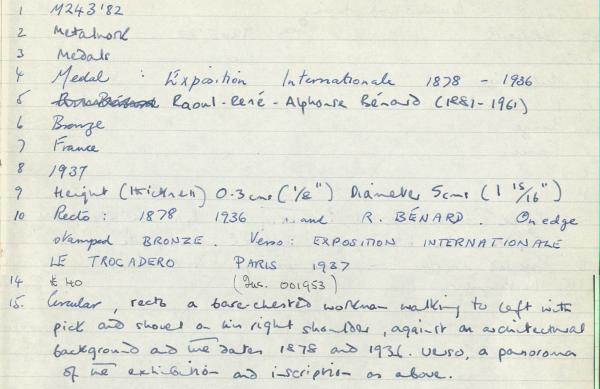 1 M243'82
2 Metalwork
3 Medals
4 Medal : Exposition Internationale 1878 - 1936
5 Raoul-René-Alphonse Bénard (1881-1961)
6 Bronze
7 France
8 1937
9 Height (thickness) 0.3 cms (1/8") Diameter 5cms (1 15/16")
10 Recto: 1878 1936 and R. BÉNARD. On edge
stamped BRONZE. Verso: EXPOSITION INTERNATIONALE
LE TROCADERO PARIS 1937
14 £40 (Ins. 001953)
15. Circular, recto a bare-chested workman walking to left with
pick and shovel on his right shoulder, against an architectural
background and the dates 1878 and 1936. Verso, a panorama
of the exhibition and inscription as above.